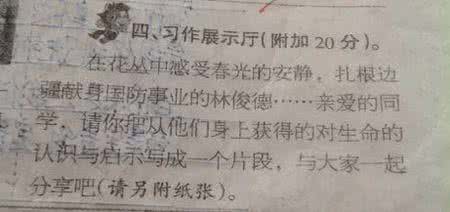 四、习作展示厅(附加20分)。
在花丛中感受春光的安静,扎根边
疆献身国防事业的林俊德……亲爱的同
学,请你把从他们身上获得的对生命的
认识与启示写成一个片段,与大家一起
分享吧(请另附纸张)。